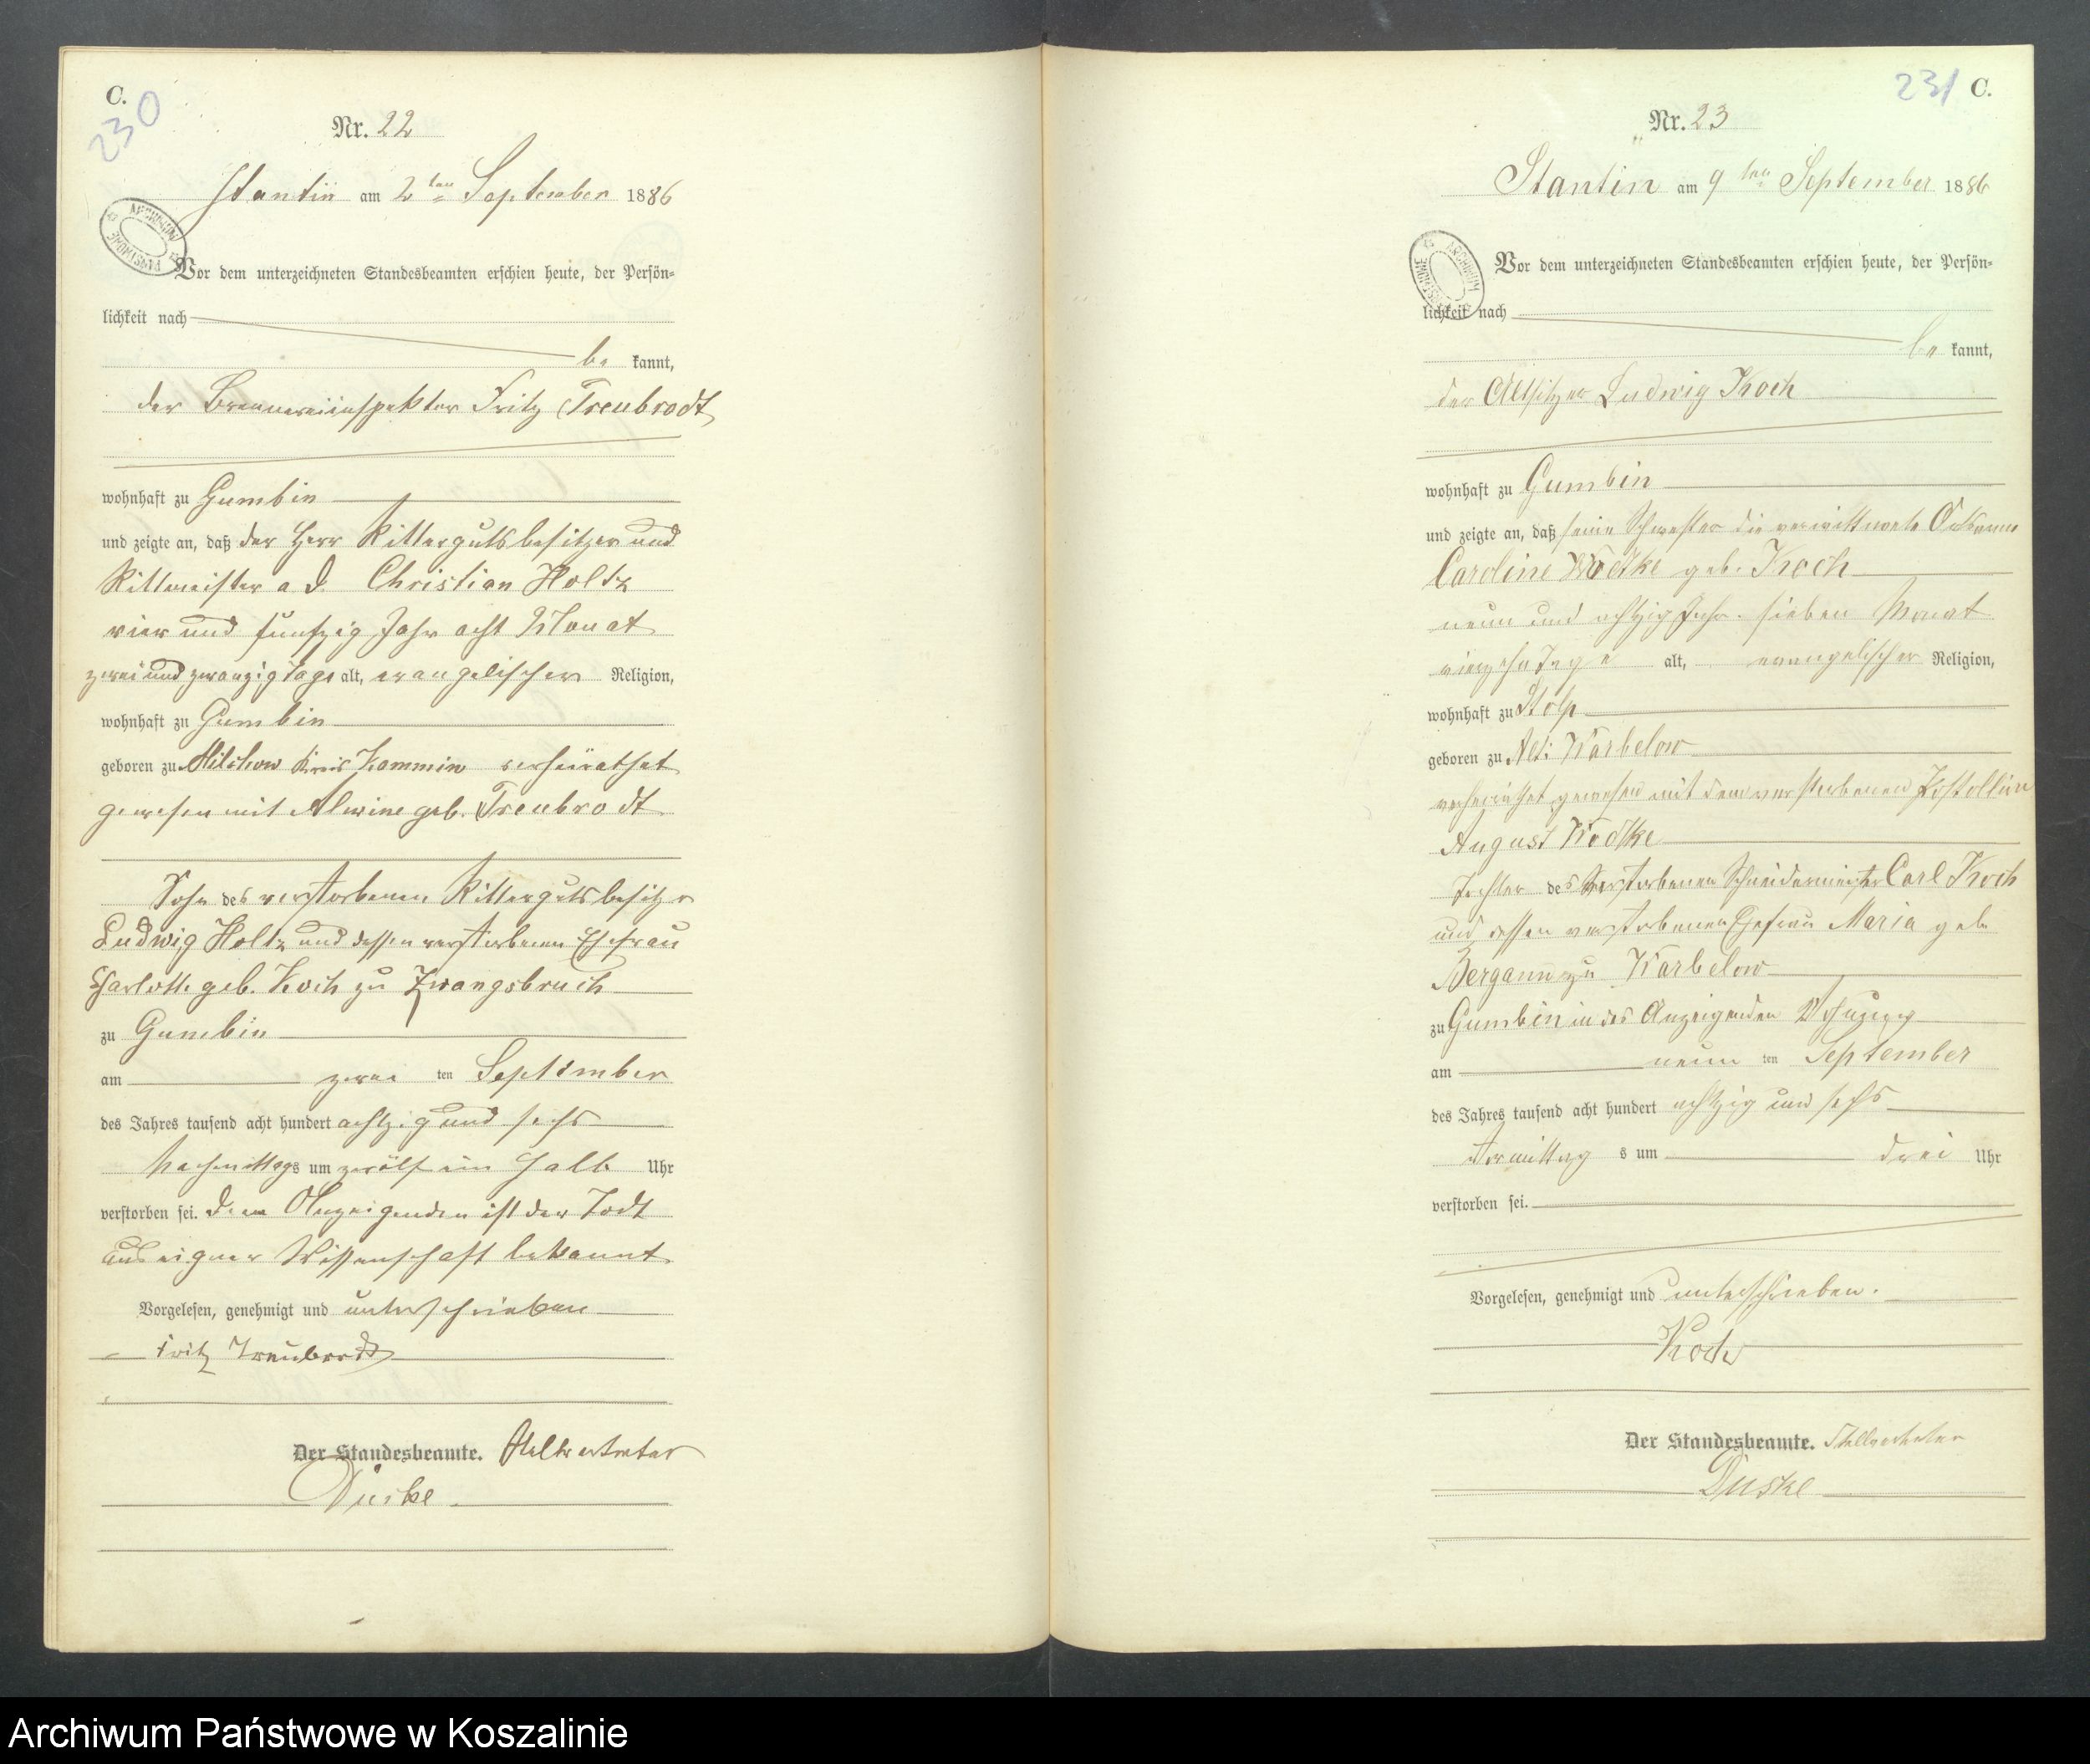 C.
230
Nr. 22
Stantin am 2ten September 1886
ARCHIWUM PAŃSTWOWE
Vor dem unterzeichneten Standesbeamten erschien heute, der Persön-
lichkeit nach
be kannt,
der Brennereiinspektor Fritz Treubrodt,
wohnhaft zu Gumbin
und zeigte an, daß der Herr Rittergutsbesitzer und
Rittmeister a D. Christian Holtz
vier und funfzig Jahr acht Monat
zwei und zwanzig Tage alt, evangelischer Religion,
wohnhaft zu Gumbin
geboren zu Milchow Kreis Kammin verheirathet
gewesen mit Alwine geb. Treubrodt
Sohn des verstorbenen Rittergutsbesitzer
Ludwig Holtz und dessen verstorbenen Ehefrau
Charlotte geb. Koch zu Zwangsbruch
zu Gumbin
am zwei ten September
des Jahres tausend acht hundert achtzig und sechs
Nachmittags um zwölf ein halb Uhr
verstorben sei. Dem Anzeigenden ist der Todt
aus eigner Wissenschaft bekannt
Vorgelesen, genehmigt und unterschrieben
Fritz Treubrodt
Der Standesbeamte. Stellvertreter
Duske
231 C.
Nr. 23
Stantin am 9ten September 1886
ARCHIWUM PAŃSTWOWE
Vor dem unterzeichneten Standesbeamten erschien heute, der Persön-
lichkeit nach
be kannt,
der Altsitzer Ludwig Koch
wohnhaft zu Gumbin
und zeigte an, daß seine Schwester die verwittwete
Caroline Wodtke geb. Koch
neun und achtzig Jahr. sieben Monat
vierzehn Tage alt, evangelischer Religion,
wohnhaft zu Stolp
geboren zu Alt: Warbelow
verheirathet gewesen mit dem verstorbenen Postillion
August Wodtke
Tochter des verstorbenen Schneidermeister Carl Koch
und dessen verstorbenen Ehefrau Maria geb
Bergann zu Warbelow
zu Gumbin in des Anzeigenden Wohnung
am neun ten September
des Jahres tausend acht hundert achtzig und sechs
Vormittag s um drei Uhr
verstorben sei.
Vorgelesen, genehmigt und unterschrieben.
Koch
Der Standesbeamte. Stellvertreter
Duske
Archiwum Państwowe w Koszalinie